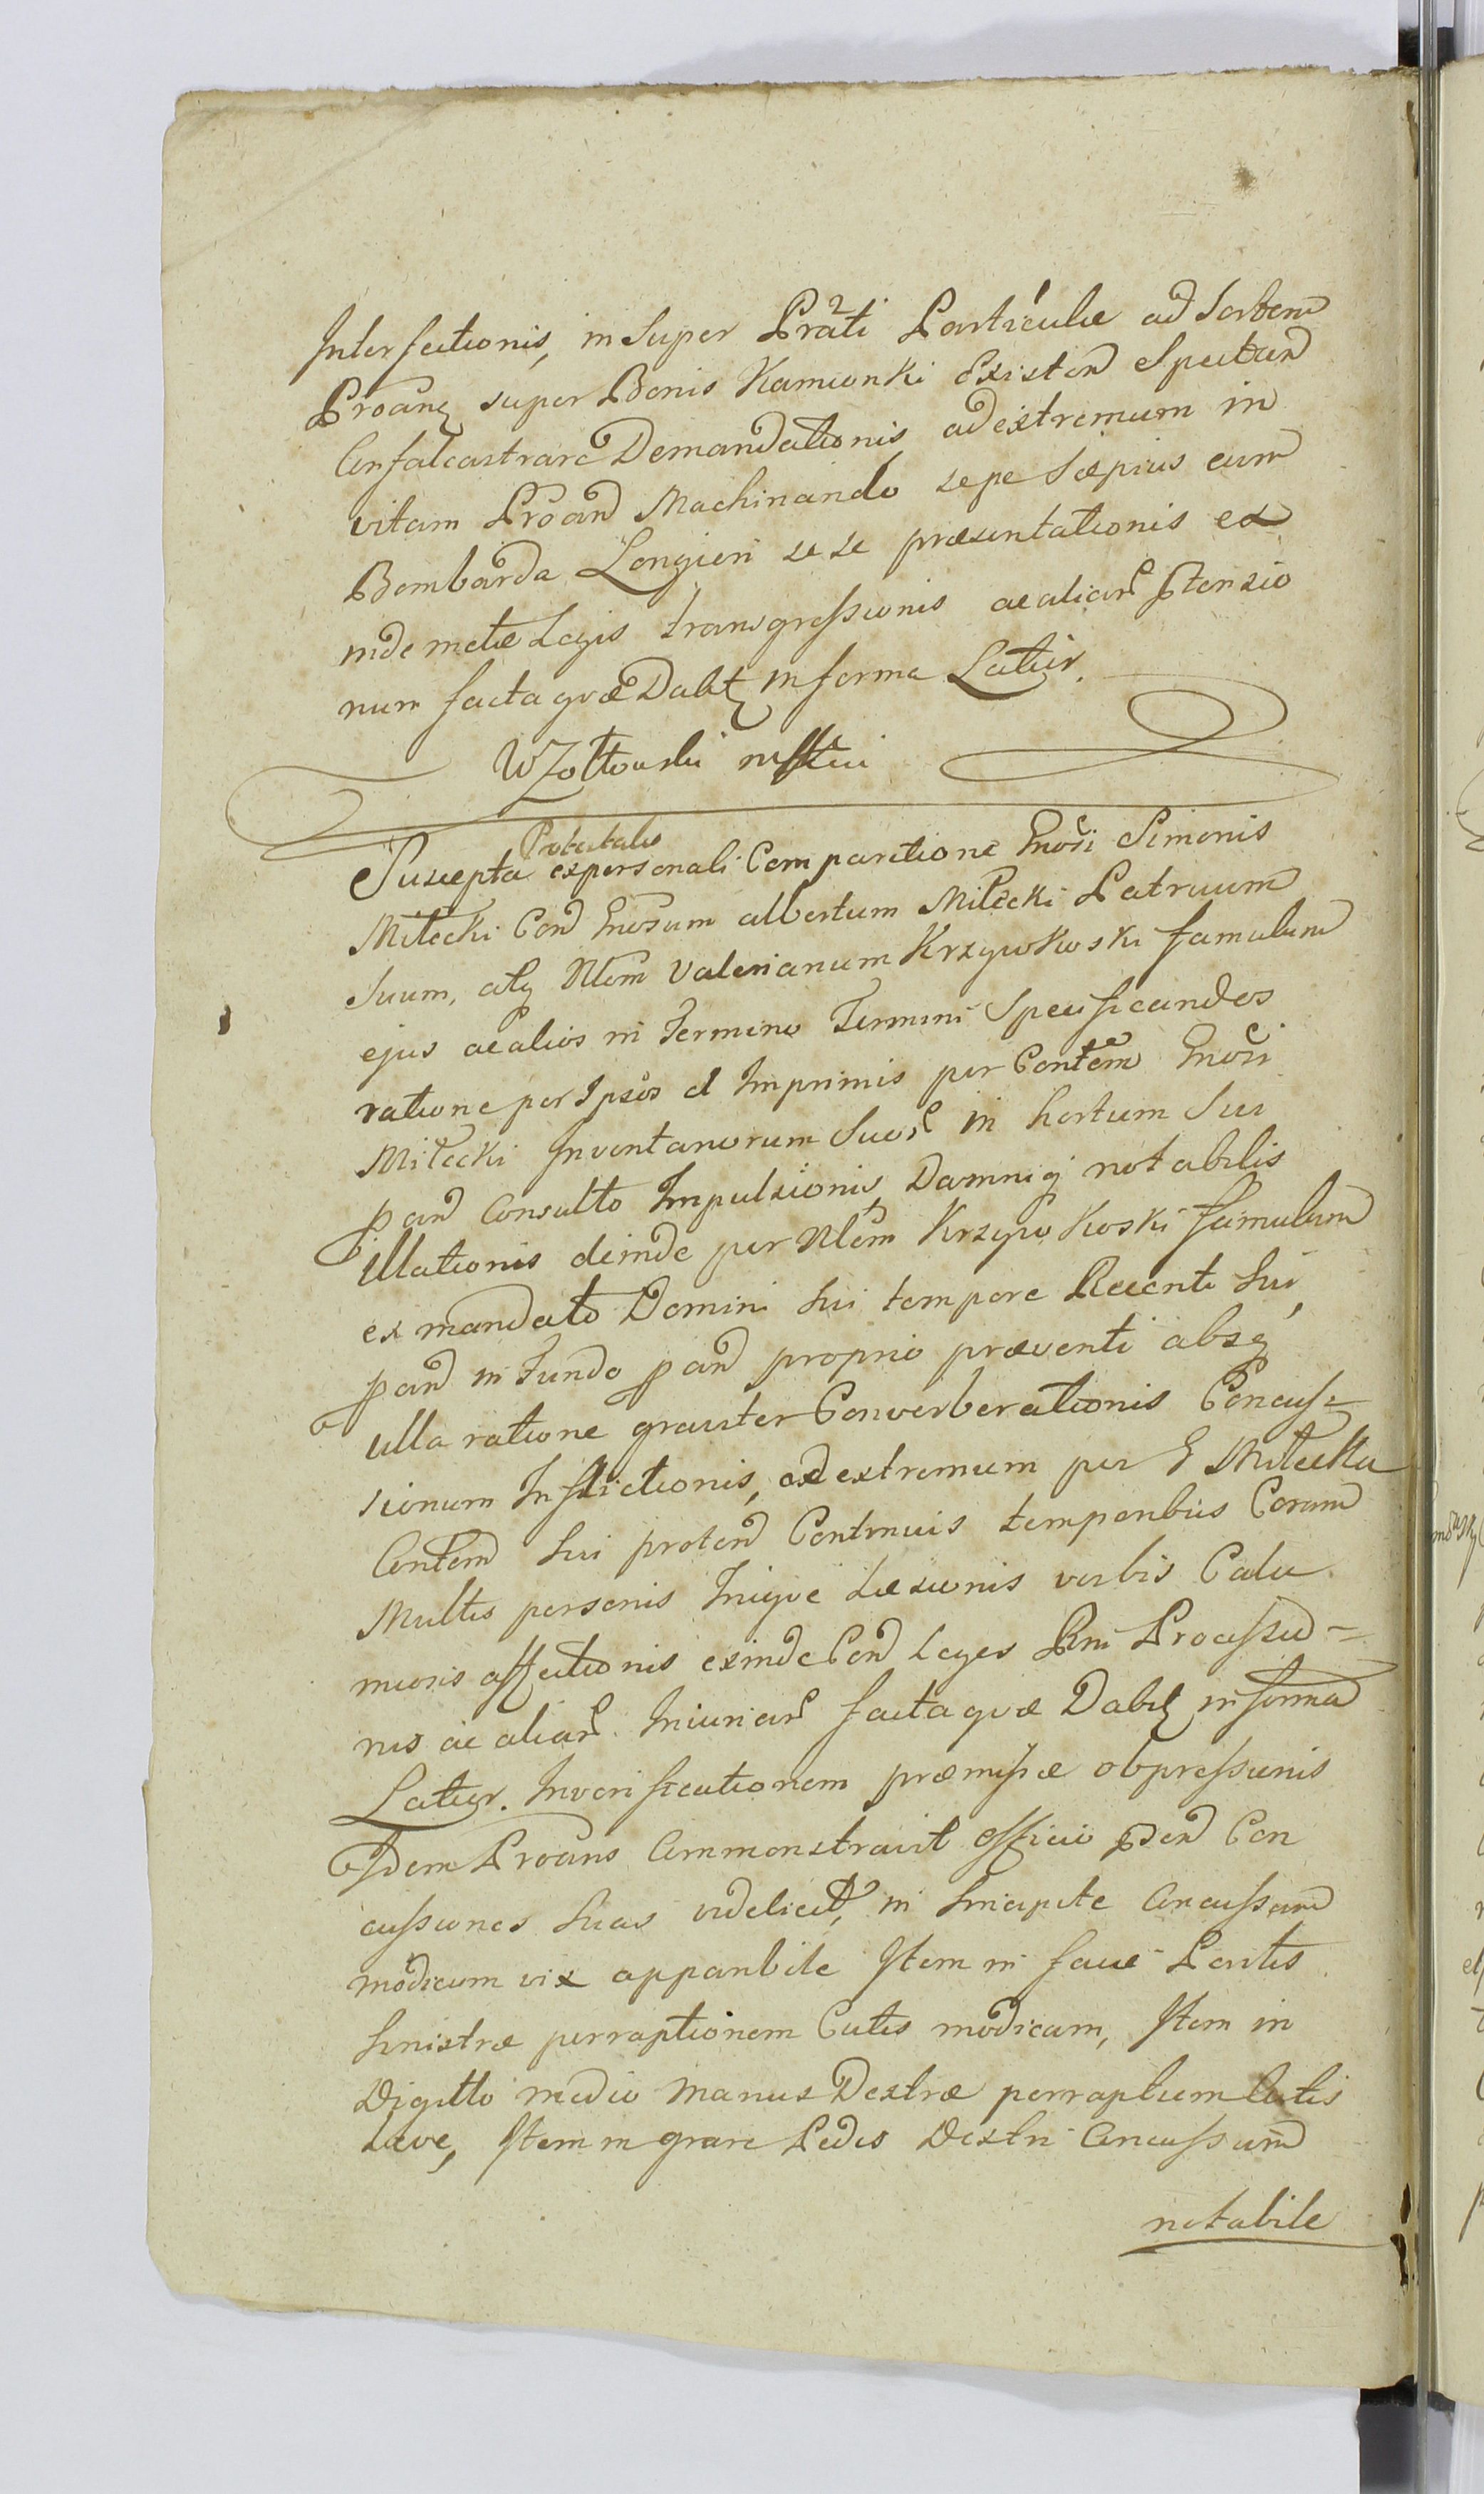 Interfectionis, in Super Prati Particulæ ad Sortem
Proang super Bonis Kamionki Existen Spectan
Confalcastrare Demandationis, ad extremum in
vitam Proan Machinando sepe Sæpius cum
Bombarda Longiori sese præsentationis ex
inde metæ Legis transgressionis ac aliar Ptensio
num facta quæ Dabit in forma Latior.
W Zołtowski mpp
Protestatio
Suscepta ex personali Comparitione Gnosi Simonis
Miłecki Con Gnosum Albertum Miłecki Patruum
Suum, atq Nlem Valerianum Krzywkoski famulum
ejus ac alios in Termino Termini Specificandos
ratione per Ipsos et Imprimis per Contem Gnosi
Miłecki Inventariorum Suor in hortum Sui
pan Consulto Impulsionis Damniq notabilis
illationis deinde per Nlem Krzywkoski famulum
ex mandato Domini Sui tempore Recenti Sui
pan in Fundo pan proprio præventi absq
ulla ratione graviter Converberationis Concus=
sionum Inflictionis, ad extremum per G Miłecki
Contem Sui proten Continuis temporibus Coram
Multis personis Inique Læsionis verbis Calu
mniosis affectionis exinde Con Leges Rni Processio=
nis ac aliar Iniuriar facta quæ Dabit in forma
Latior. In verificationem præmissæ obpressionis
Isdem Proans Commonstravit officio pden Con
cussiones Suas videlicet, in Sincipite Concussum
modicum vix apparibile Item in facie Partis
Sinistræ perraptionem Cutis modicam, Item in
Digitto medio manus Dextræ perraptum Cutis
Læve, Item in crure Pedis Dextri Concussum
notabile